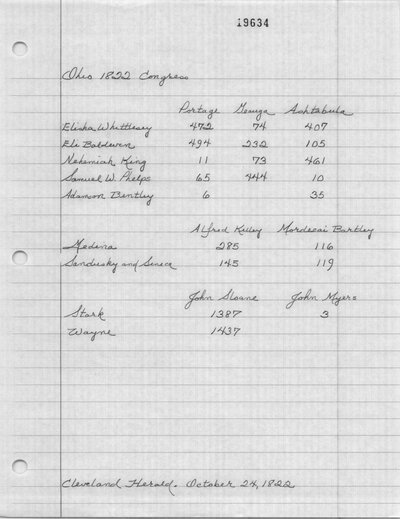 19634
Ohio 1822 Congress
Portage Geauga Ashtabula
Elisha Whittlesey 472 74 407
Eli Baldwin 494 232 105
Nehemiah King 11 73 461
Samuel W. Phelps 65 444 10
Adamson Bentley 6 35
Alfred Kelley Mordecai Bartley
Medina 285 116
Sandusky and Seneca 145 119
John Sloane John Myers
Stark 1387 3
Wayne 1437
Cleveland Herald. October 24, 1822